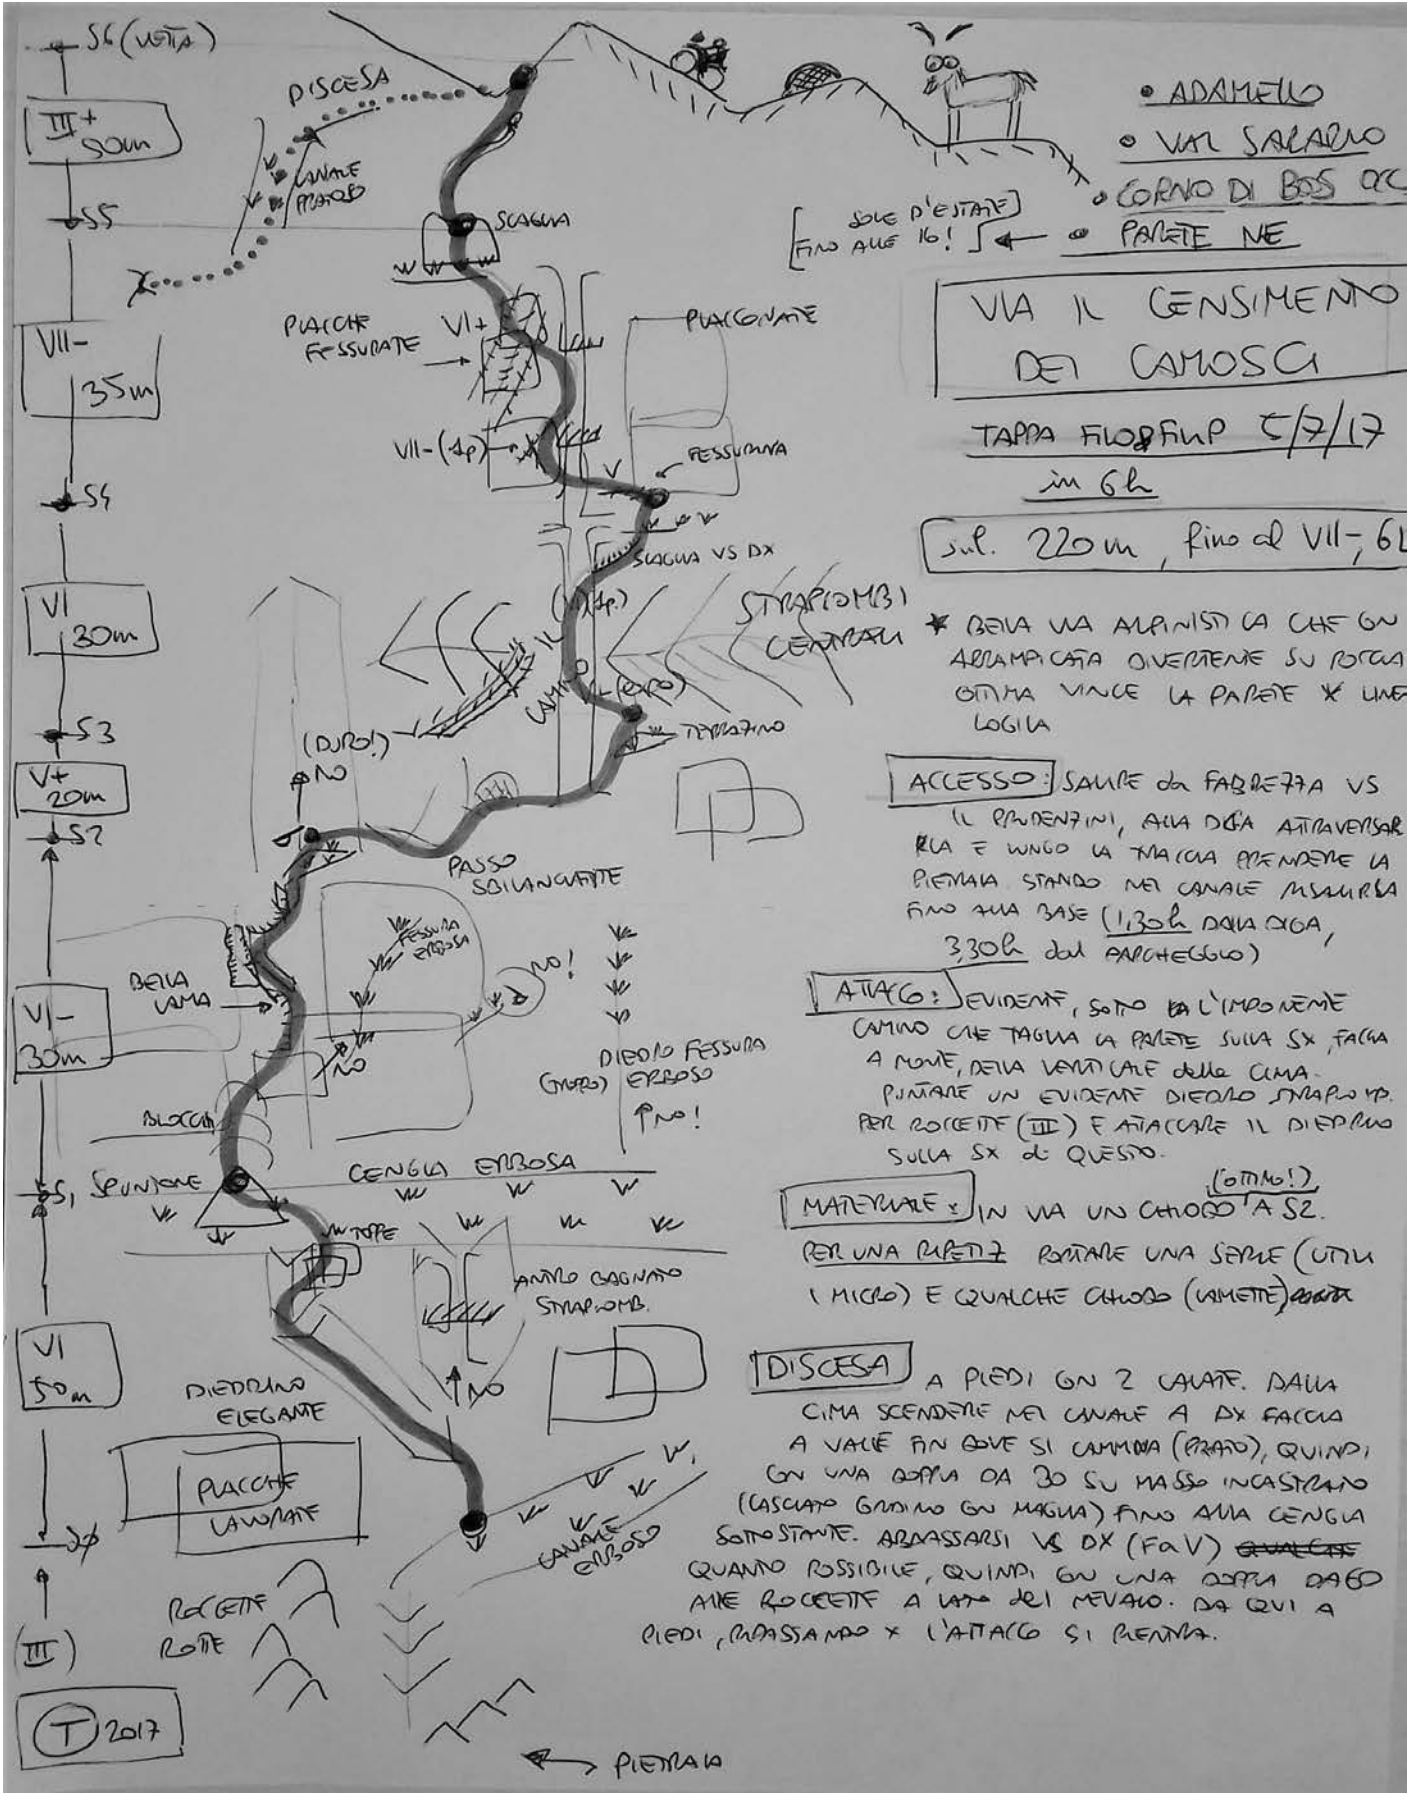 S6 (VETTA)
III+
50m
S5
VII-
35m
S4
VI
30m
S3
V+
20m
S2
VI-
30m
S1
VI
50m
(III)
T 2017
DISCESA
CANALE
PRATOSO
SCAGLIA
PLACCHE
FESSURATE
VI+
PLACCONATE
VII- (1p)
V
FESSURINA
SCAGLIA VS DX
STRAPIOMBI
CENTRALI
IL
CAMINO
(EXPO)
TERRAZZINO
(DURO!)
NO
PASSO
SBILANCIANTE
FESSURA
ERBOSA
BELLA
LAMA
NO!
NO
DIEDRO FESSURA
ERBOSO
↑ NO!
BLOCCHI
SPUNTONE
CENGIA ERBOSA
TOPPE
ANTRO BAGNATO
STRAPIOMB.
↑ NO
DIEDRINO
ELEGANTE
PLACCHE
LAVORATE
CANALE
ERBOSO
ROCCETTE
ROTTE
← PIETRAIA
• ADAMELLO
• VAL SALARNO
• CORNO DI BOS OCC
• PARETE NE
[SOLE D'ESTATE
FINO ALLE 16!] ←
VIA IL CENSIMENTO
DEI CAMOSCI
TAPPA 5/7/17
in 6h
Svil. 220m, fino al VII-, 6L
* BELLA VIA ALPINISTICA CHE CON
ARRAMPICATA DIVERTENTE SU ROCCIA
OTTIMA VINCE LA PARETE X LINEA
LOGICA
ACCESSO: SALIRE da FABREZZA VS
IL PRUDENZINI, ALLA DIGA ATTRAVERSAR
RLA E LUNGO LA TRACCIA PRENDERE LA
PIETRAIA STANDO NEL CANALE
FINO ALLA BASE (1,30h DALLA DIGA,
3,30h dal PARCHEGGIO)
ATTACCO: EVIDENTE, SOTTO L'IMPONENTE
CAMINO CHE TAGLIA LA PARETE SULLA SX, FACCIA
A MONTE, DELLA VERTICALE della CIMA.
PUNTARE UN EVIDENTE DIEDRO STRAPIOMB.
PER ROCCETTE (III) E ATTACCARE IL DIEDRINO
SULLA SX di QUESTO.
(OTTIMO!)
MATERIALE: IN VIA UN CHIODO A S2.
PER UNA RIPETIZ PORTARE UNA SERIE (UTILI
I MICRO) E QUALCHE CHIODO (LAMETTE)
DISCESA A PIEDI CON 2 CALATE. DALLA
CIMA SCENDERE NEL CANALE A DX FACCIA
A VALLE FIN DOVE SI CAMMINA (PRATO), QUINDI
CON UNA DOPPIA DA 30 SU MASSO INCASTRATO
(LASCIATO CORDINO CON MAGLIA) FINO ALLA CENGIA
SOTTOSTANTE. ABBASSARSI VS DX (FaV)
QUANTO POSSIBILE, QUINDI CON UNA DOPPIA DA 60
ALLE ROCCETTE A LATO del NEVAIO. DA QUI A
PIEDI, RIPASSANDO X L'ATTACCO SI RIENTRA.